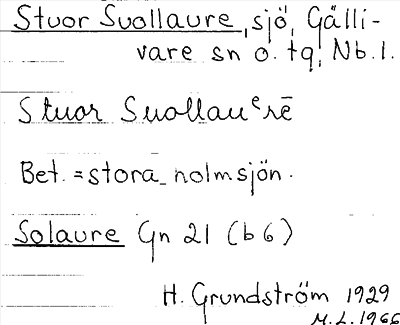 Stuor Suollaure, sjö, Gälli-
vare sn o. tg, Nb. l.
Stuor Suollauᵉrē
Bet. = stora holmsjön.
Solaure Gn 21 (b 6)
H. Grundström 1929
M.L. 1966